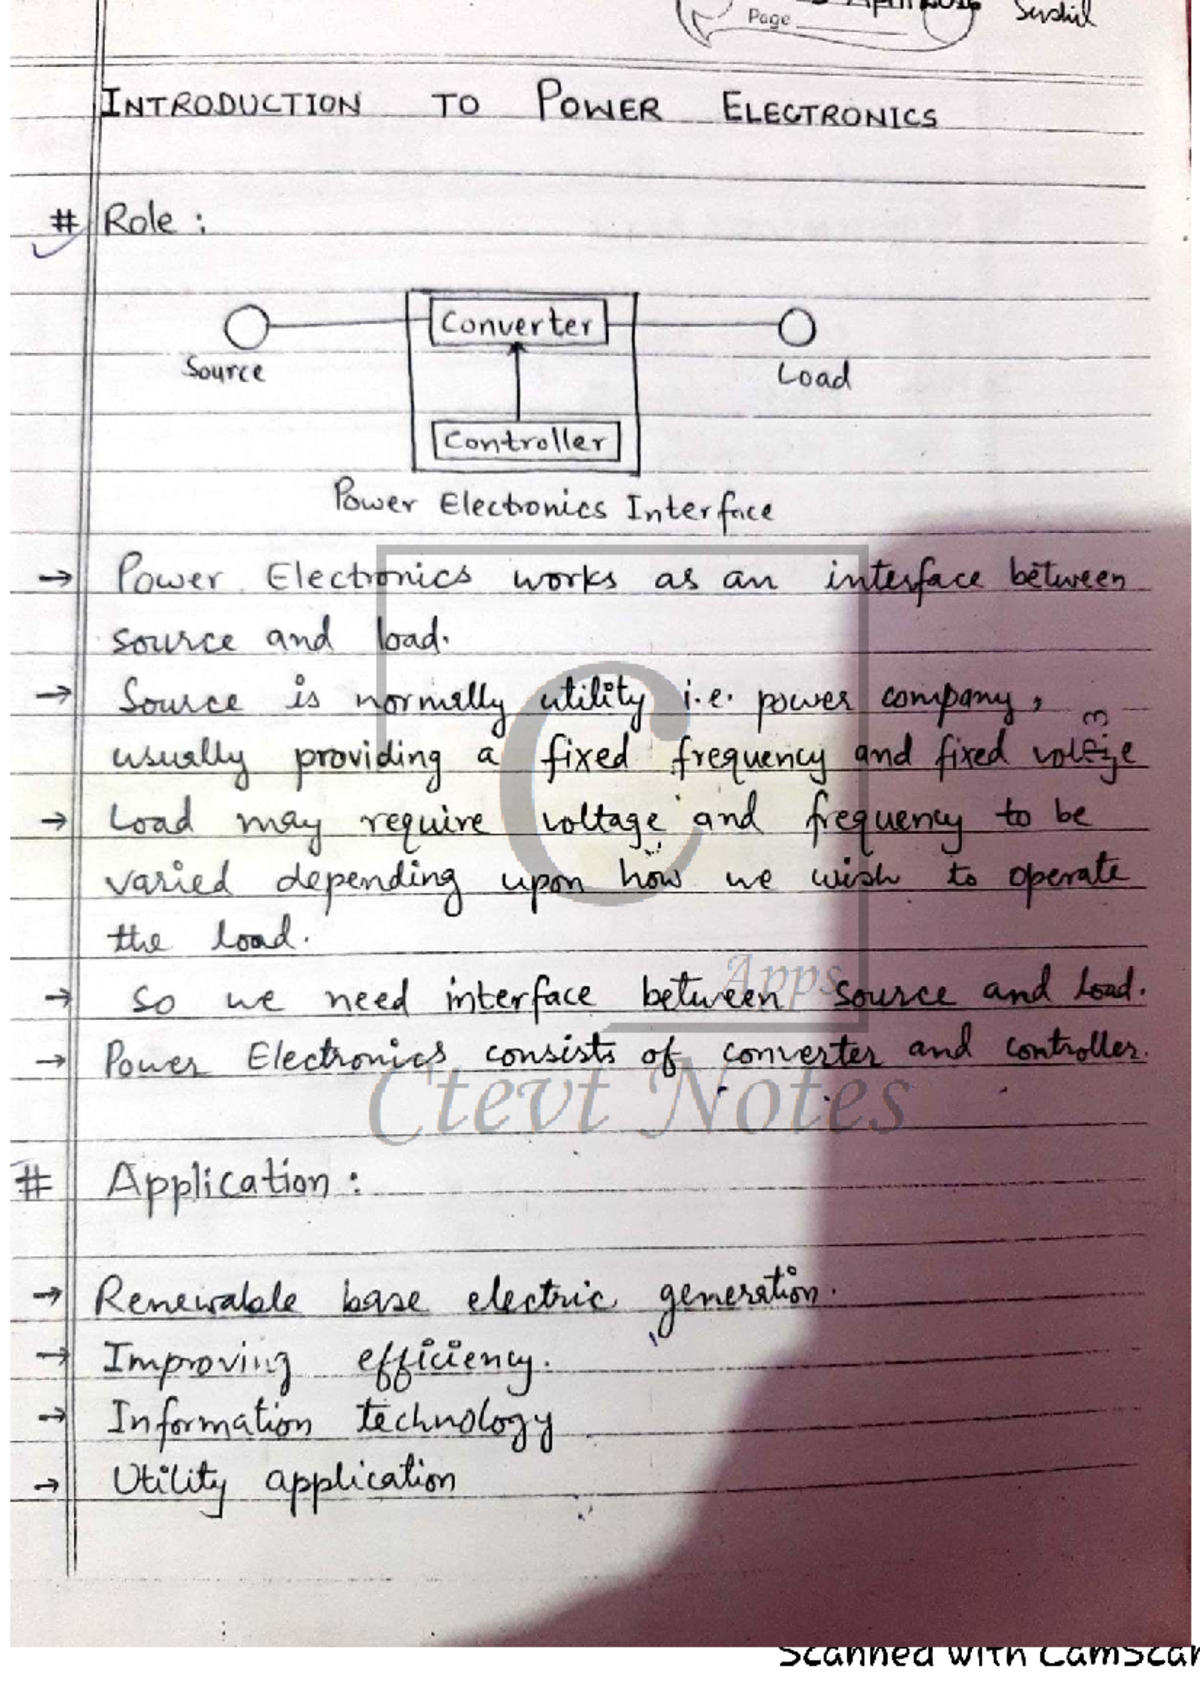 Page
INTRODUCTION TO POWER ELECTRONICS
# Role :
Converter
Source
Load
Controller
Power Electronics Interface
→ Power Electronics works as an interface between
source and load.
→ Source is normally utility i.e. power company,
usually providing a fixed frequency and fixed voltage
→ Load may require voltage and frequency to be
varied depending upon how we wish to operate
the load.
Apps
→ so we need interface between source and load.
→ Power Electronics consists of converter and controller.
Ctevt Notes
# Application :
→ Renewable base electric generation.
→ Improving efficiency.
→ Information technology
→ Utility application
Scanned with CamScan